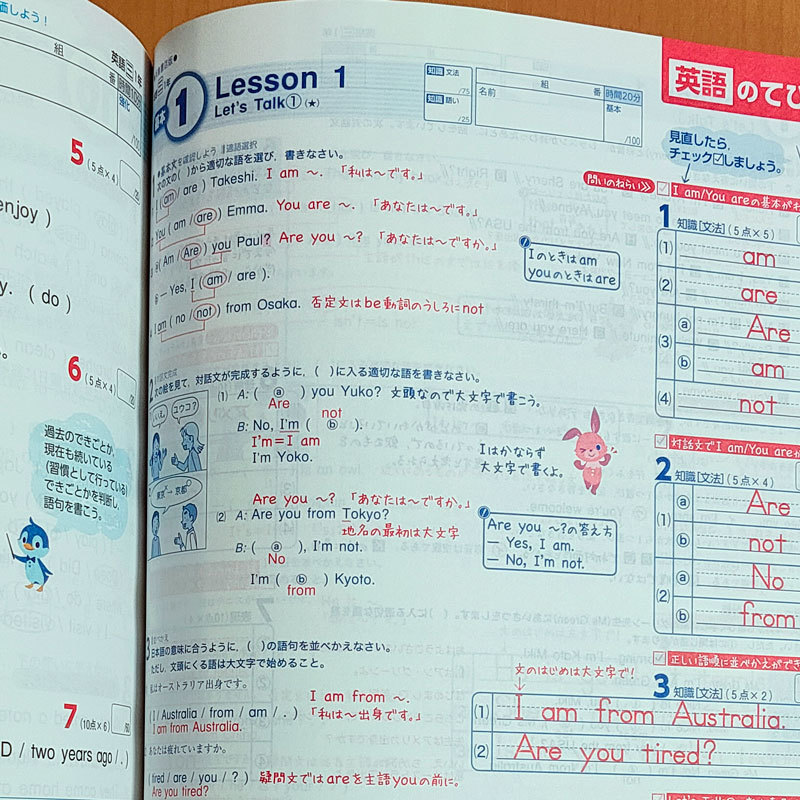 価しよう！
英語 三 1年
組
番
時間
強化
/100
5
(5点×4)
/20
enjoy )
y. ( do )
6
(5点×4)
/20
過去のできごとか、
現在も続いている
(習慣として行っている)
できごとかを判断し
語句を書こう。
7
(10点×6)
/60
D / two years ago / . )
英語 三 1年
基本
1
Lesson 1
Let's Talk① (★)
知識 文法
/75
知識 語い
/25
組
番
名前
時間20分
基本
/100
英語のてび
見直したら、
チェック☑しましょう。
1 基本文を確認しよう 適語選択
次の文の( )から適切な語を選び、書きなさい。
問いのねらい
1 I ( am / are ) Takeshi. I am ～. 「私は～です。」
2 You ( am / are ) Emma. You are ～. 「あなたは～です。」
3 ⓐ ( Am / Are ) you Paul? Are you ～? 「あなたは～ですか。」
ⓑ — Yes, I ( am / are ).
Iのときはam
youのときはare
4 I am ( no / not ) from Osaka. 否定文はbe動詞のうしろにnot
2 対話文完成
次の絵を見て、対話文が完成するように、( )に入る適切な語を書きなさい。
いいえ。
ユウコ?
(1) A: ( ⓐ ) you Yuko? 文頭なので大文字で書こう。
Are
not
B: No, I'm ( ⓑ ).
I'm=I am
I'm Yoko.
Iはかならず
大文字で書くよ。
東京→京都
Are you ～? 「あなたは～ですか。」
(2) A: Are you from Tokyo?
地名の最初は大文字
B: ( ⓐ ), I'm not.
No
I'm ( ⓑ ) Kyoto.
from
Are you ～?の答え方
— Yes, I am.
— No, I'm not.
3 並べかえ
日本語の意味に合うように、( )の語句を並べかえなさい。
ただし、文頭にくる語は大文字で始めること。
私はオーストラリア出身です。
I am from ～.
( I / Australia / from / am / . ) 「私は～出身です。」
I am from Australia.
あなたは疲れていますか。
( tired / are / you / ? ) 疑問文ではareを主語youの前に。
Are you tired?
☑ I am/You areの基本がわ
1 知識[文法] (5点×5)
(1) am
(2) are
(3) ⓐ Are
ⓑ am
(4) not
☑ 対話文でI am/You areが
2 知識[文法] (5点×4)
(1) ⓐ Are
ⓑ not
(2) ⓐ No
ⓑ from
☑ 正しい語順に並べかえができ
文のはじめは大文字で!
3 知識[文法] (5点×2)
(1) I am from Australia.
(2) Are you tired?